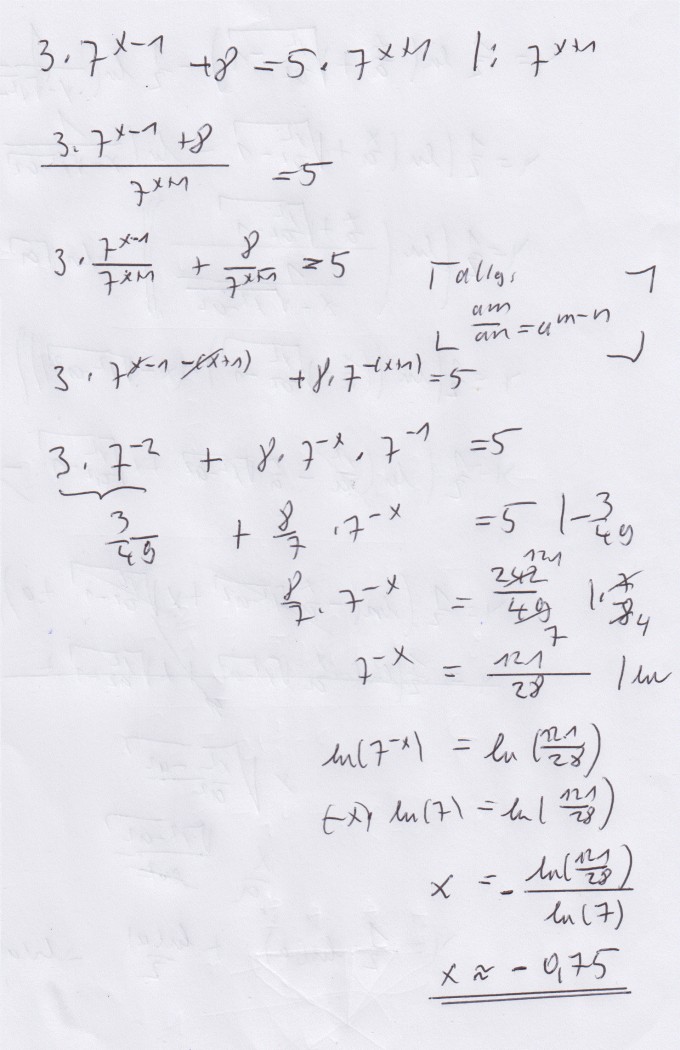 3 · 7^(x-1) + 8 = 5 · 7^(x+1) |: 7^(x+1)
(3 · 7^(x-1) + 8) / 7^(x+1) = 5
3 · 7^(x-1)/7^(x+1) + 8/7^(x+1) = 5
[allg.
am/an = a^(m-n)]
3 · 7^(x-1-(x+1)) + 8 · 7^(-(x+1)) = 5
3 · 7^(-2) + 8 · 7^(-x) · 7^(-1) = 5
3/49 + 8/7 · 7^(-x) = 5 |- 3/49
8/7 · 7^(-x) = 242/49 |· 7/8
121 7 4
7^(-x) = 121/28 | ln
ln(7^(-x)) = ln(121/28)
(-x) · ln(7) = ln(121/28)
x = - ln(121/28) / ln(7)
x ≈ - 0,75